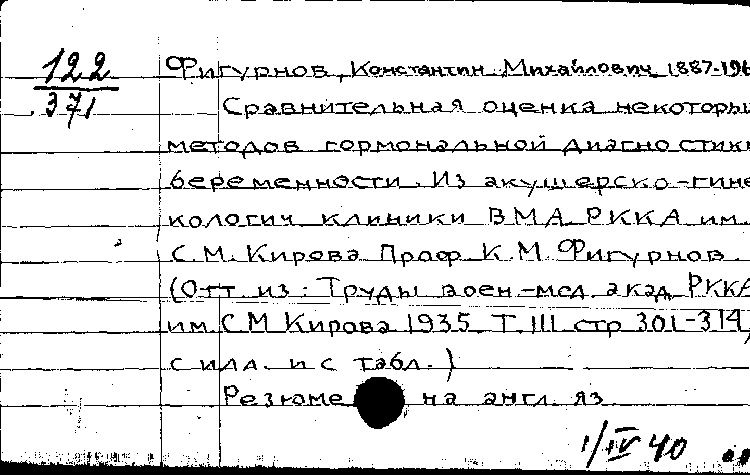 122
371
Фигурнов, Константин Михайлович, 1887-196
Сравнительная оценка некоторы
методов гормональной диагностик
беременности. Из акушерско-гине
кологич клиники ВМА РККА им.
С.М. Кирова Проф К.М. Фигурнов.
(Отт из: Труды воен-мед. акад. РККА
им С М Кирова 1935 Т. III стр 301-314,
с илл. и с табл.)
Резюме на англ. яз
1/IV 40